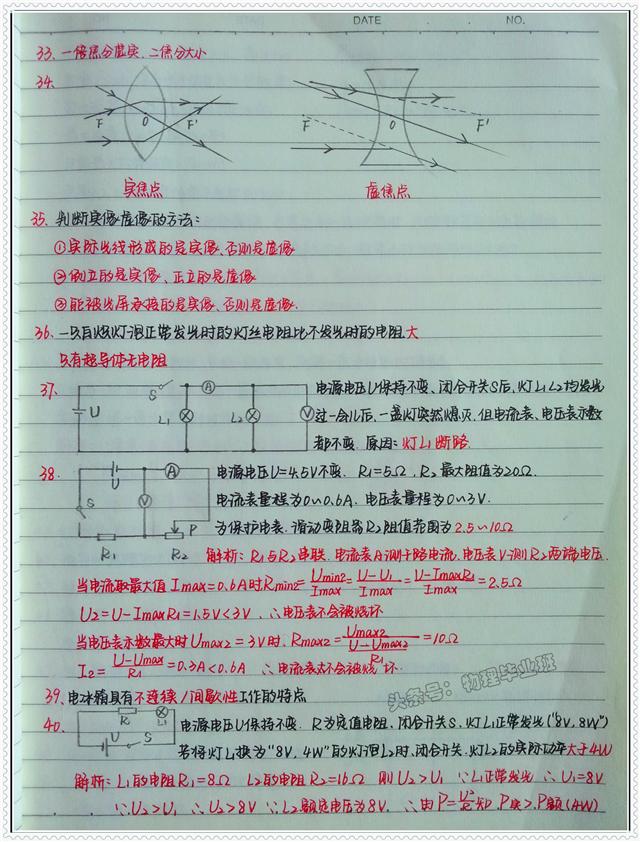 DATE NO.
33. 一倍焦分虚实、二焦分大小
34.
F O F'
F O F'
实焦点 虚焦点
35. 判断实像虚像的方法:
①实际光线形成的是实像、否则是虚像
②倒立的是实像、正立的是虚像
③能被光屏承接的是实像、否则是虚像.
36. 一只白炽灯泡正常发光时的灯丝电阻比不发光时的电阻大
只有超导体无电阻
37. U S A L1 L2 V 电源电压U保持不变、闭合开关S后,灯L1 L2均发光
过一会儿后,一盏灯突然熄灭,但电流表、电压表示数
都不变. 原因: 灯L1断路.
38. U A V S R1 R2 P 电源电压U=4.5V不变. R1=5Ω, R2最大阻值为20Ω.
电流表量程为0~0.6A. 电压表量程为0~3V.
为保护电表. 滑动变阻器R2阻值范围为2.5~10Ω
解析: R1与R2串联. 电流表A测干路电流. 电压表V测R2两端电压.
当电流取最大值Imax=0.6A时. Rmin2=Umin2/Imax=U-U1/Imax=U-ImaxR1/Imax=2.5Ω
U2=U-ImaxR1=1.5V<3V ∴电压表不会被烧坏
当电压表示数最大时Umax2=3V时. Rmax2=Umax2/(U-Umax2/R1)=10Ω
I2=U-Umax/R1=0.3A<0.6A ∴电流表不会被烧坏.
39. 电冰箱具有不连续/间歇性工作的特点
40. R L1 U S 电源电压U保持不变. R为定值电阻. 闭合开关S. 灯L1正常发光("8V,8W")
若将灯L1换为"8V,4W"的灯泡L2时、闭合开关. 灯L2的实际功率大于4W
解析: L1的电阻R1=8Ω L2的电阻R2=16Ω 则U2>U1 ∵L1正常发光 ∴U1=8V
∵U2>U1 ∴U2>8V ∵L2额定电压为8V. ∴由P=U²/R知. P实>P额(4W)
头条号: 物理毕业班